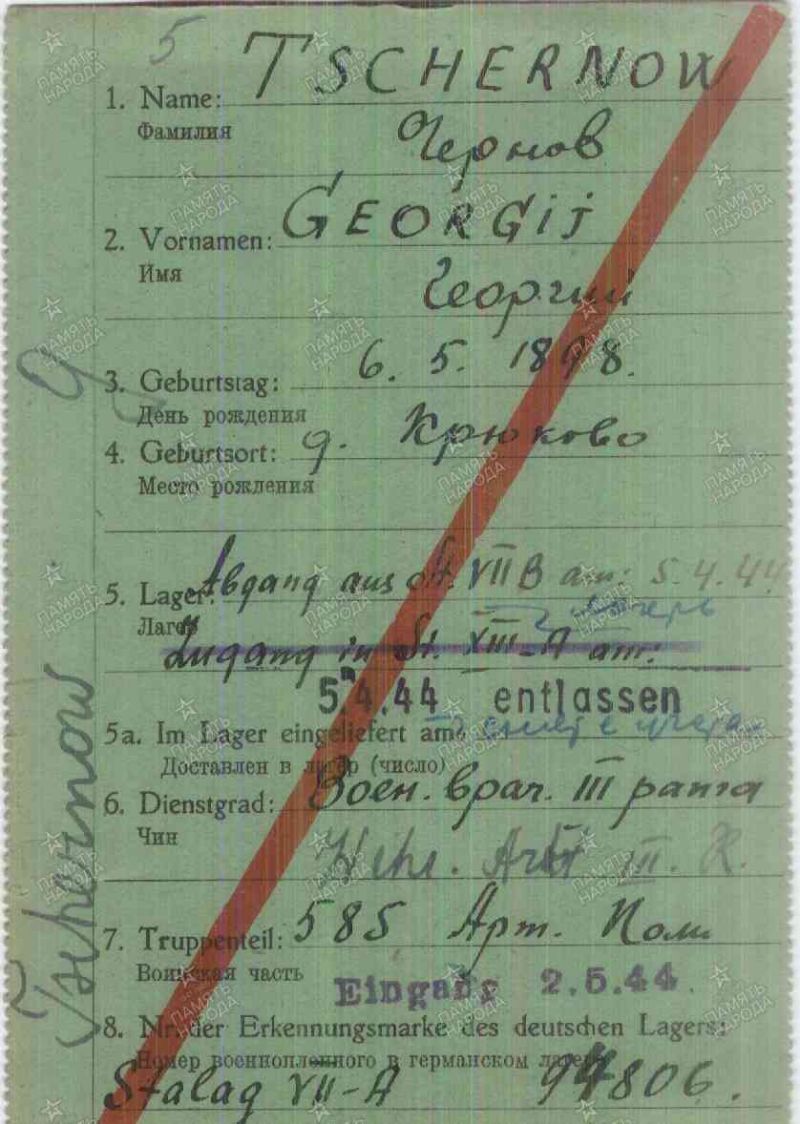 5
TSCHERNOW
1. Name:
Фамилия
Чернов
GEORGIJ
2. Vornamen:
Имя
Георгий
3. Geburtstag: 6. 5. 1898.
День рождения
4. Geburtsort: д. Крюково
Место рождения
5. Lager: Abgang aus St. VII B am: 5.4.44
Лагерь
лагерь
Zugang in St. XIII-A am:
5.4.44 entlassen
5a. Im Lager eingeliefert am:
Доставлен в лагерь (число)
6. Dienstgrad: Воен. врач. III ранга
Чин
Arzt III. R.
7. Truppenteil: 585 Арт. Полк
Воинская часть
Eingang 2.5.44.
8. Nr. der Erkennungsmarke des deutschen Lagers:
Номер военнопленного в германском лагере
Stalag VII-A 94806.
Tschernow
ПАМЯТЬ
НАРОДА